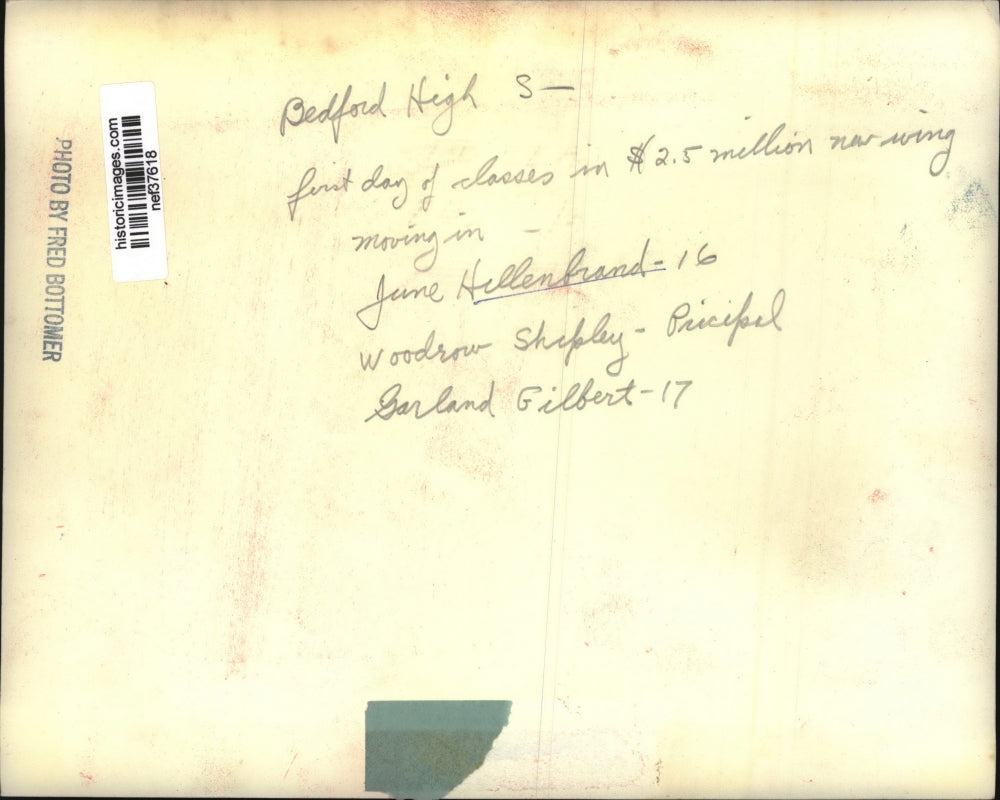 Bedford High S—
first day of classes in $2.5 million new wing
moving in -
June Hillenbrand - 16
Woodrow Shipley - Pricipal
Garland Gilbert - 17
PHOTO BY FRED BOTTOMER
historicimages.com
nef37618